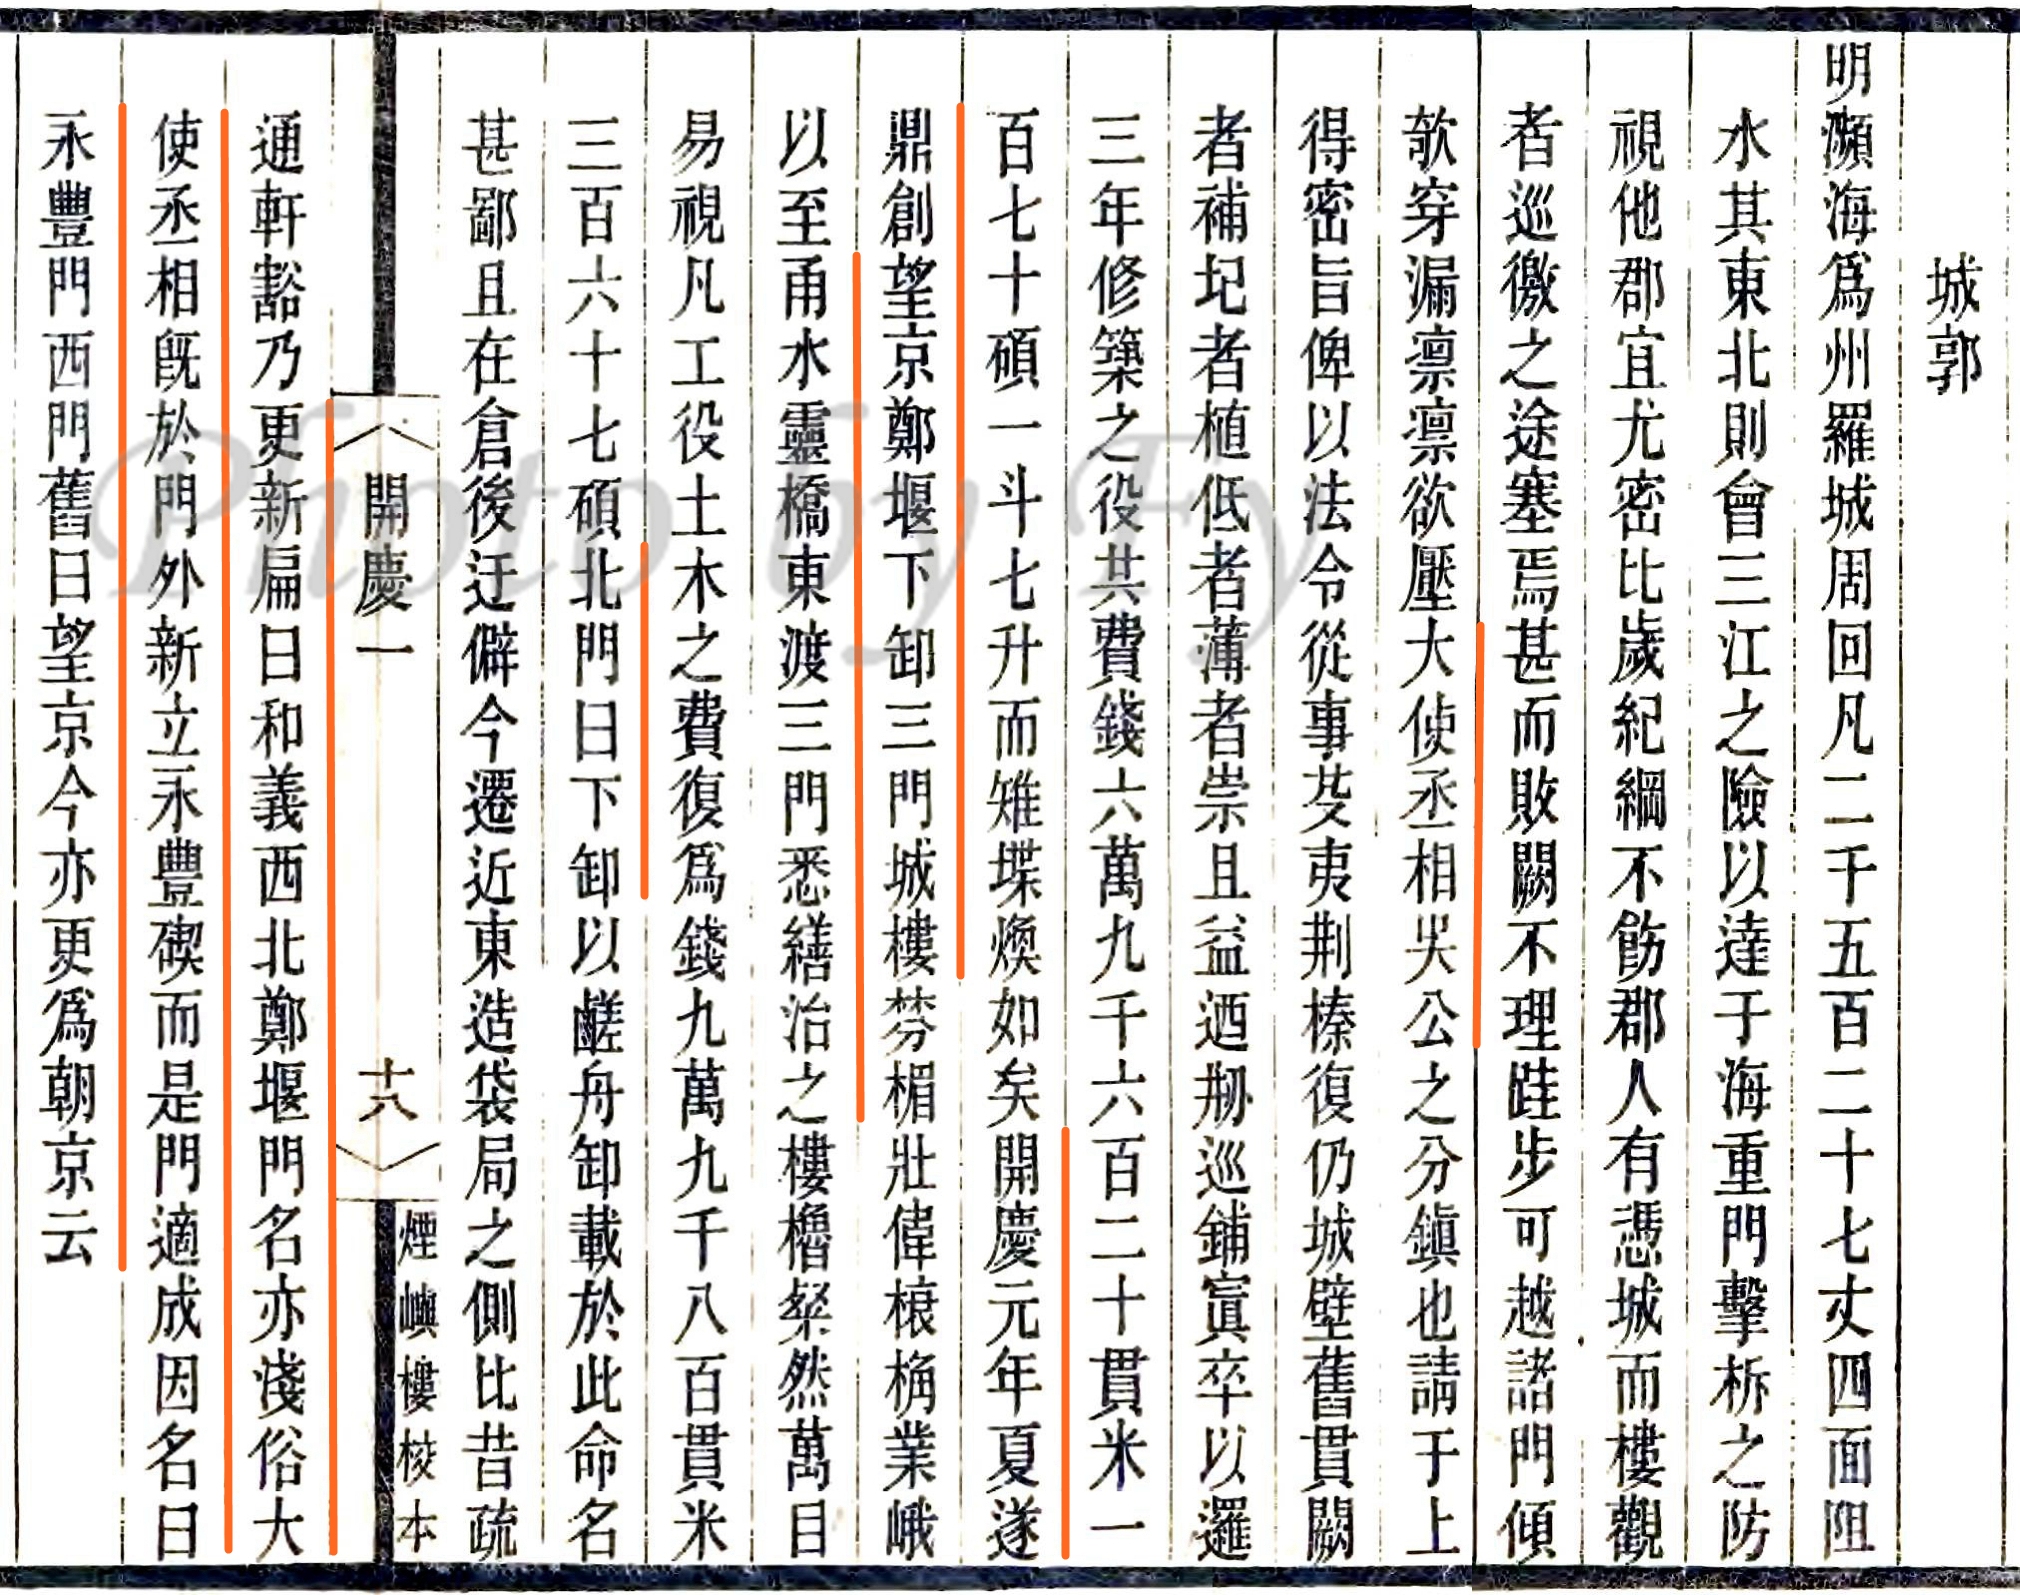 城郭
明瀕海爲州羅城周回凡二千五百二十七丈四面阻
水其東北則會三江之險以達于海重門擊柝之防
視他郡宜尤密比歲紀綱不飭郡人有憑城而樓觀
者巡徼之途塞焉甚而敗闕不理跬步可越諸門傾
欹穿漏凛凛欲壓大使丞相吳公之分鎮也請于上
得密旨俾以法令從事芟夷荆榛復仍城壁舊貫闕
者補圮者植低者薄者崇且益迺剏巡鋪寘卒以邏
三年修築之役共費錢六萬九千六百二十貫米一
百七十碩一斗七升而雉堞煥如矣開慶元年夏遂
鼎創望京鄭堰下卸三門城樓棼楣壯偉榱桷業峨
以至甬水靈橋東渡三門悉繕治之樓櫓粲然萬目
易視凡工役土木之費復爲錢九萬九千八百貫米
三百六十七碩北門曰下卸以鹺舟卸載於此命名
甚鄙且在倉後迂僻今遷近東造袋局之側比昔疏
開慶一
十八
煙嶼樓校本
通軒豁乃更新扁曰和義西北鄭堰門名亦淺俗大
使丞相旣於門外新立永豐碶而是門適成因名曰
永豐門西門舊曰望京今亦更爲朝京云
Photo by Fy